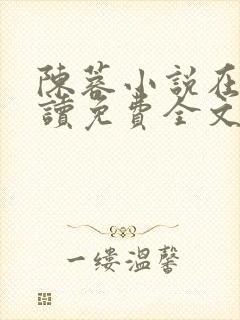 陳蓉小說在
讀免費全文
一缕溫馨